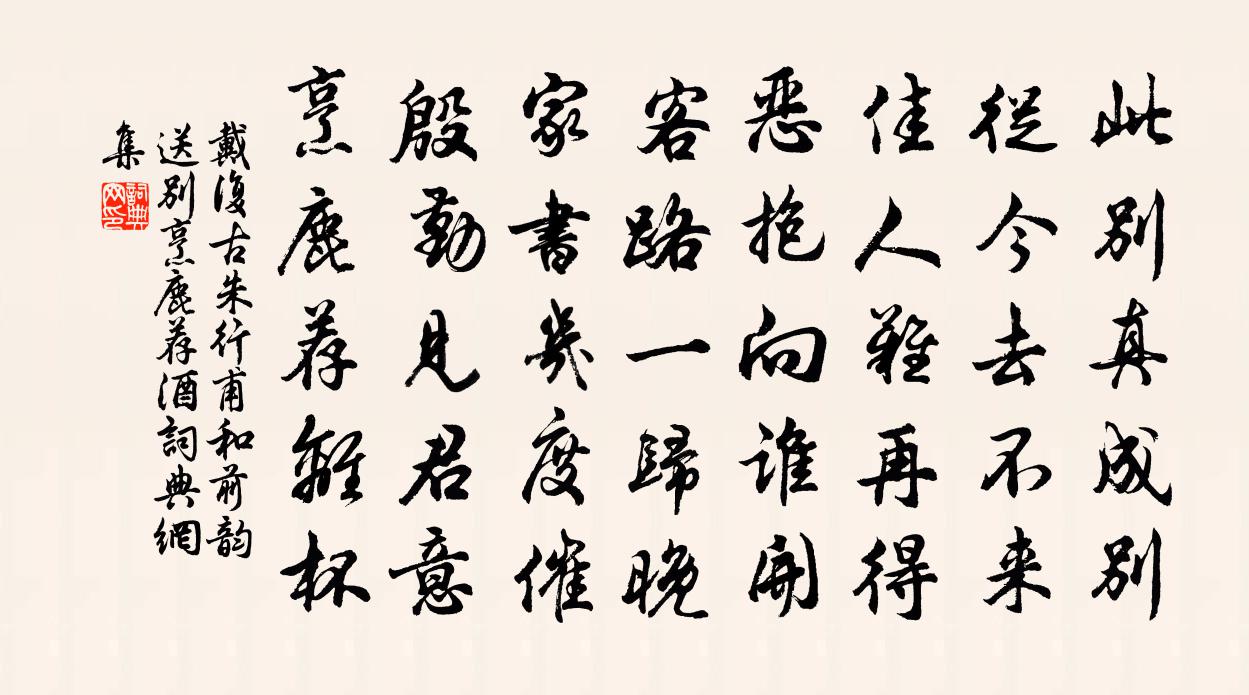 此别真成别
從今去不来
佳人難再得
恶抱向谁開
客路一歸晚
家書幾度催
殷勤見君意
烹鹿荐離杯
戴復古朱行甫和前韵
送别烹鹿荐酒詞典網
集
詞典
网印